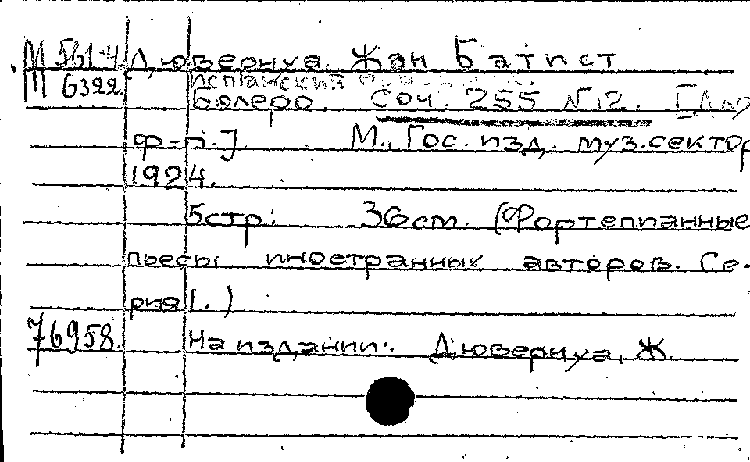 М 561-4 Дювернуа Жан Батист
М 6322 Испанский
Болеро. Соч. 255 N12. [Для
ф-п.] М., Гос. изд. муз. сектор
1924.
5стр. 36см. (Фортепианные
пьесы иностранных авторов. Се-
рия I.)
76958. На издании: Дювернуа, Ж.